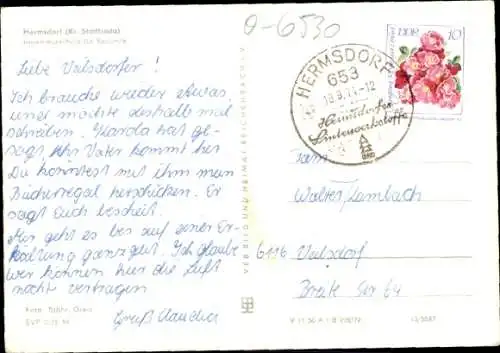 Hermsdorf (Kr. Stadtroda)
Liebe Veilsdorfer!
Ich brauche wieder etwas,
und möchte deshalb mal
schreiben. Karola hat ge-
sagt Ihr Vater kommt her
Du könntest mit ihm mein
Bücherregal herschicken. Er
sagt Euch bescheit.
Mir geht es bis auf einer Er-
kältung ganz gut. Ich glaube
wir können hier die Luft
nicht vertragen
Gruß Claudia
Foto:
VEB BILD UND HEIMAT REICHENBACH
0-6530
HERMSDORF
653
Hermsdorfer
Sinterwerkstoffe
DDR
10
Fam.
Walter Lambach
6116 Veilsdorf
Breite Str 64